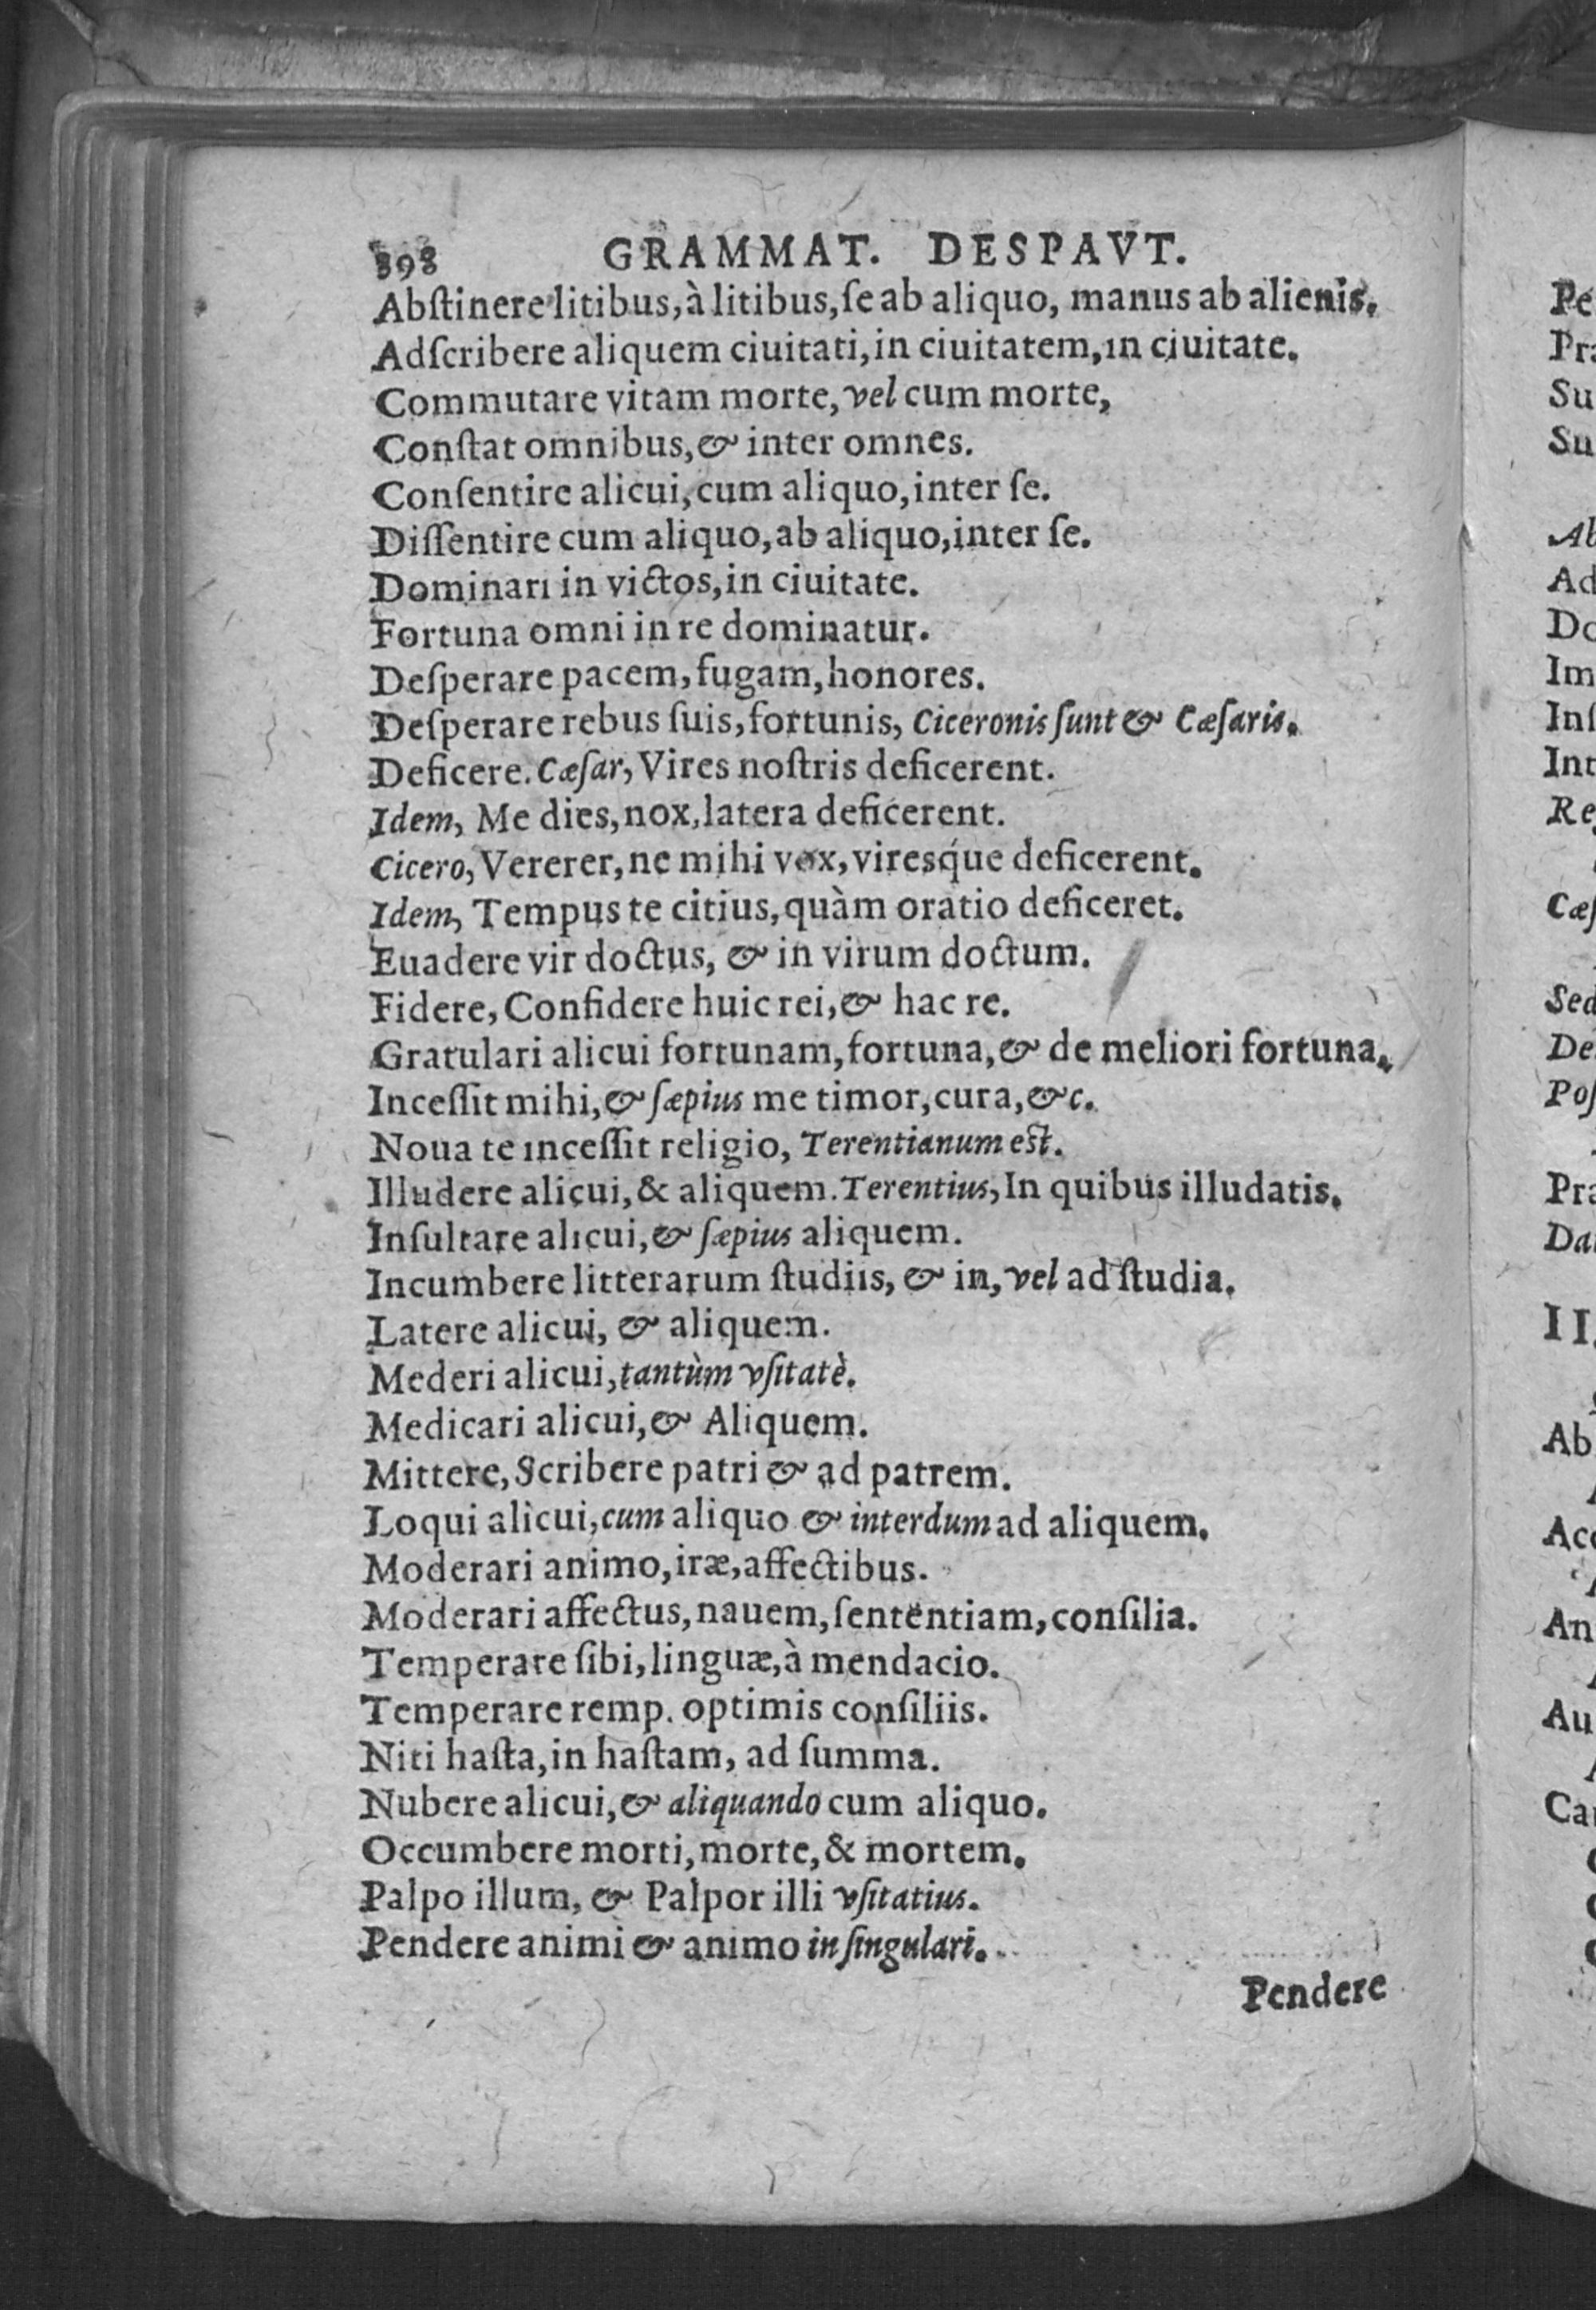 398 GRAMMAT. DESPAVT.
Abſtinere litibus, à litibus, ſe ab aliquo, manus ab alienis.
Adſcribere aliquem ciuitati, in ciuitatem, in ciuitate.
Commutare vitam morte, vel cum morte,
Conſtat omnibus, & inter omnes.
Conſentire alicui, cum aliquo, inter ſe.
Diſſentire cum aliquo, ab aliquo, inter ſe.
Dominari in victos, in ciuitate.
Fortuna omni in re dominatur.
Deſperare pacem, fugam, honores.
Deſperare rebus ſuis, fortunis, Ciceronis ſunt & Cæſaris.
Deficere. Cæſar, Vires noſtris deficerent.
Idem, Me dies, nox, latera deficerent.
Cicero, Vererer, ne mihi vox, viresq́ue deficerent.
Idem, Tempus te citius, quàm oratio deficeret.
Euadere vir doctus, & in virum doctum.
Fidere, Confidere huic rei, & hac re.
Gratulari alicui fortunam, fortuna, & de meliori fortuna.
Inceſſit mihi, & ſæpius me timor, cura, &c.
Noua te inceſſit religio, Terentianum eſt.
Illudere alicui, & aliquem. Terentius, In quibus illudatis.
Inſultare alicui, & ſæpius aliquem.
Incumbere litterarum ſtudiis, & in, vel ad ſtudia.
Latere alicui, & aliquem.
Mederi alicui, tantùm vſitatè.
Medicari alicui, & Aliquem.
Mittere, Scribere patri & ad patrem.
Loqui alicui, cum aliquo & interdum ad aliquem.
Moderari animo, iræ, affectibus.
Moderari affectus, nauem, ſententiam, conſilia.
Temperare ſibi, linguæ, à mendacio.
Temperare remp. optimis conſiliis.
Niti haſta, in haſtam, ad ſumma.
Nubere alicui, & aliquando cum aliquo.
Occumbere morti, morte, & mortem.
Palpo illum, & Palpor illi vſitatius.
Pendere animi & animo in ſingulari.
Pendere